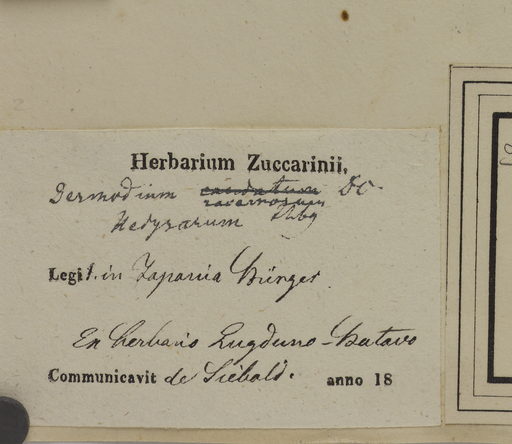 Herbarium Zuccarinii.
Desmodium caudatum DC.
racemosum Thbg
Hedysarum
Legit. in Japonia Bürger
Ex herbario Lugduno-Batavo
Communicavit de Siebold. anno 18